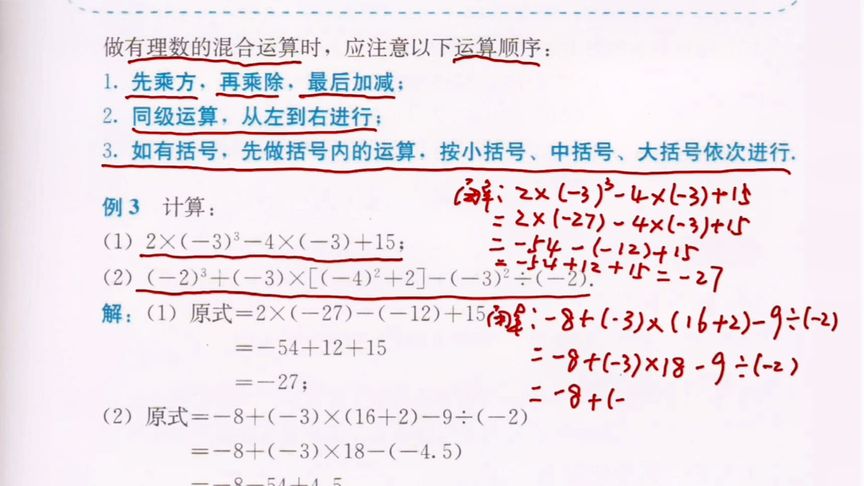 做有理数的混合运算时，应注意以下运算顺序：
1. 先乘方，再乘除，最后加减；
2. 同级运算，从左到右进行；
3. 如有括号，先做括号内的运算，按小括号、中括号、大括号依次进行.
例3 计算：
(1) 2×(−3)³−4×(−3)+15；
(2) (−2)³+(−3)×[(−4)²+2]−(−3)²÷(−2).
: 2×(-3)³-4×(-3)+15
= 2×(-27)-4×(-3)+15
= -54-(-12)+15
= -54+12+15=-27
解：(1) 原式=2×(−27)−(−12)+15
=−54+12+15
=−27；
: -8+(-3)×(16+2)-9÷(-2)
= -8+(-3)×18-9÷(-2)
= -8+(-
(2) 原式=−8+(−3)×(16+2)−9÷(−2)
=−8+(−3)×18−(−4.5)
=−8−54+4.5